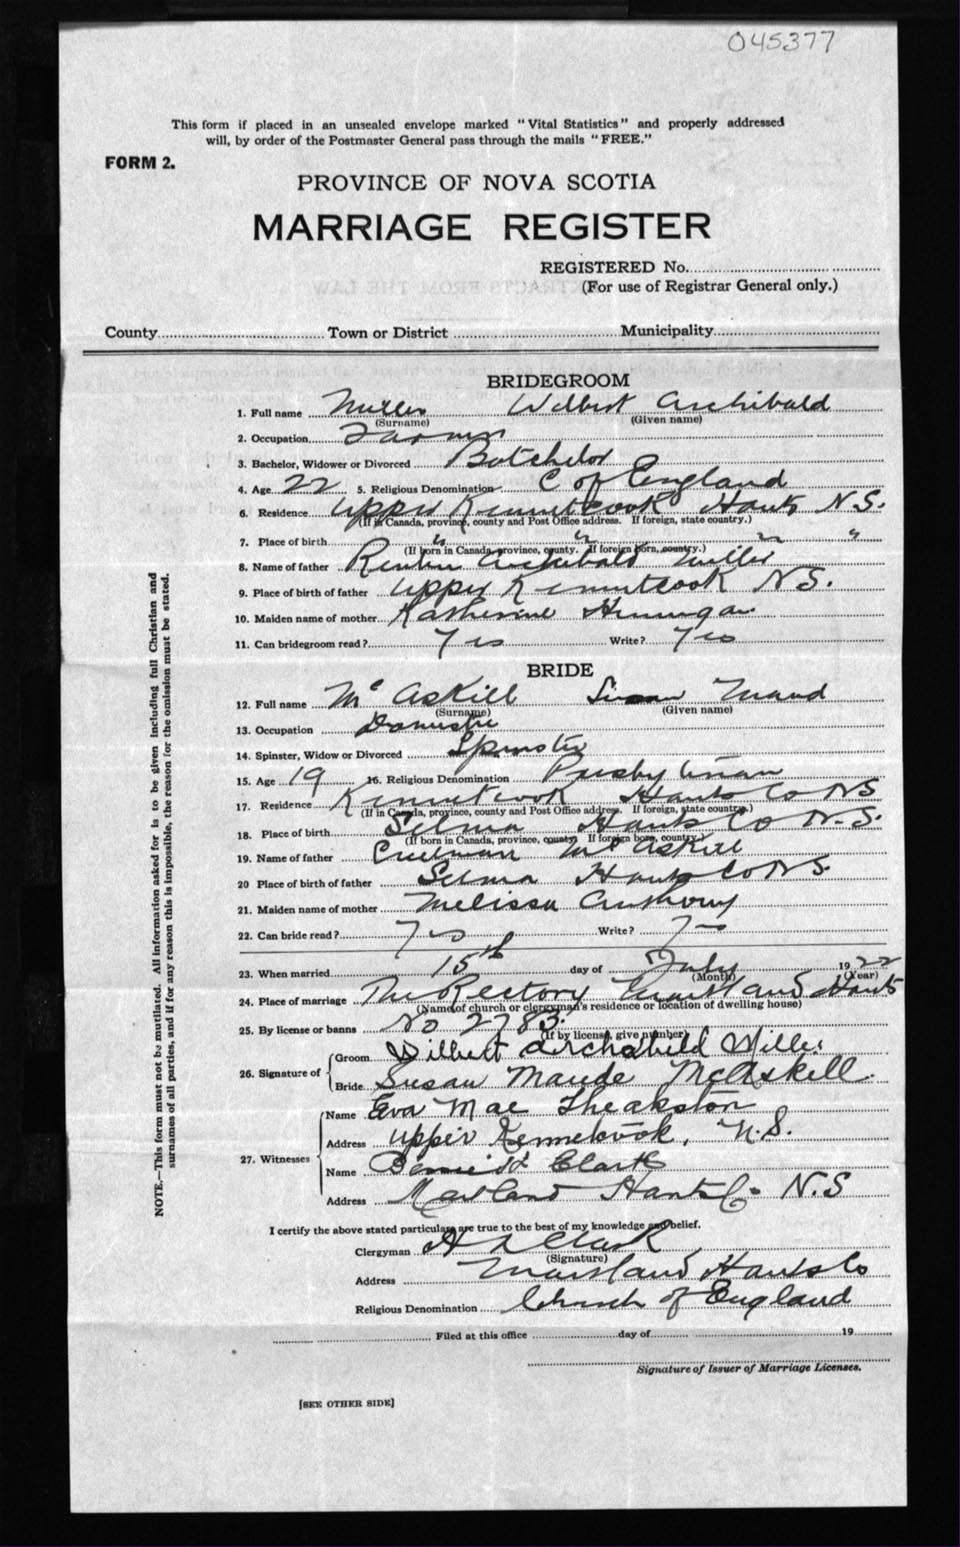 045377
This form if placed in an unsealed envelope marked "Vital Statistics" and properly addressed
will, by order of the Postmaster General pass through the mails "FREE."
FORM 2.
PROVINCE OF NOVA SCOTIA
MARRIAGE REGISTER
REGISTERED No.
(For use of Registrar General only.)
County Town or District Municipality
BRIDEGROOM
1. Full name Miller Wilbert Archibald
(Surname) (Given name)
2. Occupation Farmer
3. Bachelor, Widower or Divorced Batchelor
4. Age 22 5. Religious Denomination C of England
6. Residence Upper Kennetcook Hants N.S.
(If in Canada, province, county and Post Office address. If foreign, state country.)
7. Place of birth " " " "
(If born in Canada, province, county. If foreign born, country.)
8. Name of father Archibald Miller
9. Place of birth of father Upper Kennetcook N.S.
10. Maiden name of mother Katherine
11. Can bridegroom read? Yes Write? Yes
BRIDE
12. Full name McAskill Susan Maud
(Surname) (Given name)
13. Occupation Domestic
14. Spinster, Widow or Divorced Spinster
15. Age 19 16. Religious Denomination Presbyterian
17. Residence Kennetcook Hants Co NS
(If in Canada, province, county and Post Office address. If foreign, state country.)
18. Place of birth Selma Hants Co N.S.
(If born in Canada, province, county. If foreign born, country.)
19. Name of father McAskill
20 Place of birth of father Selma Hants Co NS
21. Maiden name of mother Melissa Anthony
22. Can bride read? Yes Write? Yes
23. When married 15th day of July 1922
(Month) (Year)
24. Place of marriage The Rectory Maitland Hants
(Name of church or clergyman's residence or location of dwelling house)
25. By license or banns No 2783
(If by license, give number)
26. Signature of
Groom Wilbert Archabild Miller
Bride Susan Maude McAskill.
27. Witnesses
Name Eva Mae Theakston
Address Upper Kennetcook, N.S.
Name Clark
Address Maitland Hants Co N.S
I certify the above stated particulars are true to the best of my knowledge and belief.
Clergyman Clark
(Signature)
Address Maitland Hants Co
Religious Denomination Church of England
Filed at this office day of 19
Signature of Issuer of Marriage Licenses.
[SEE OTHER SIDE]
NOTE.—This form must not be mutilated. All information asked for is to be given including full Christian and
surnames of all parties, and if for any reason this is impossible, the reason for the omission must be stated.